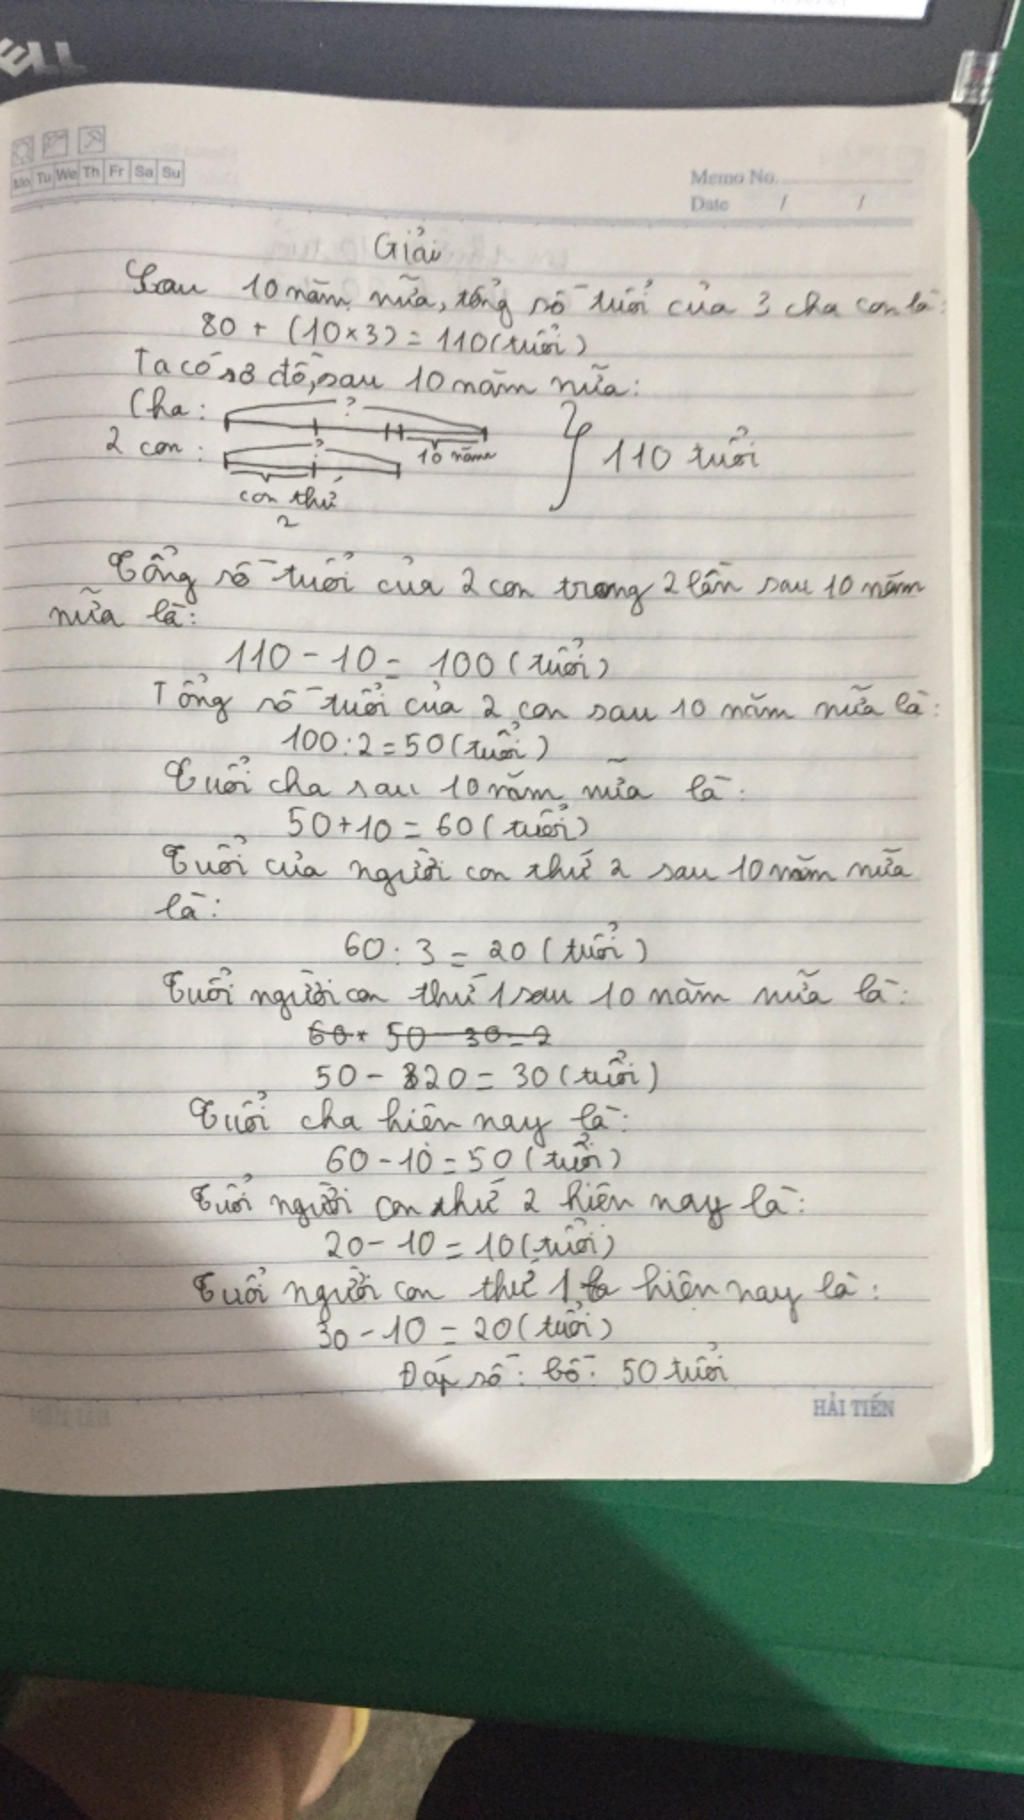 ELL
Mo Tu We Th Fr Sa Su
Memo No.
Date / /
Giải
Sau 10 năm nữa, tổng số tuổi của 3 cha con là:
80 + (10×3) = 110 (tuổi)
Ta có sơ đồ, sau 10 năm nữa:
Cha: ?
10 năm
2 con: ?
con thứ
2
110 tuổi
Tổng số tuổi của 2 con trong 2 lần sau 10 năm
nữa là:
110 - 10 = 100 (tuổi)
Tổng số tuổi của 2 con sau 10 năm nữa là:
100 : 2 = 50 (tuổi)
Tuổi cha sau 10 năm nữa là:
50 + 10 = 60 (tuổi)
Tuổi của người con thứ 2 sau 10 năm nữa
là:
60 : 3 = 20 (tuổi)
Tuổi người con thứ 1 sau 10 năm nữa là:
50 - 30 = 2
50 - 20 = 30 (tuổi)
Tuổi cha hiện nay là:
60 - 10 = 50 (tuổi)
Tuổi người con thứ 2 hiên nay là:
20 - 10 = 10 (tuổi)
Tuổi người con thứ 1 hiên nay là:
30 - 10 = 20 (tuổi)
Đáp số: bố: 50 tuổi
HẢI TIẾN